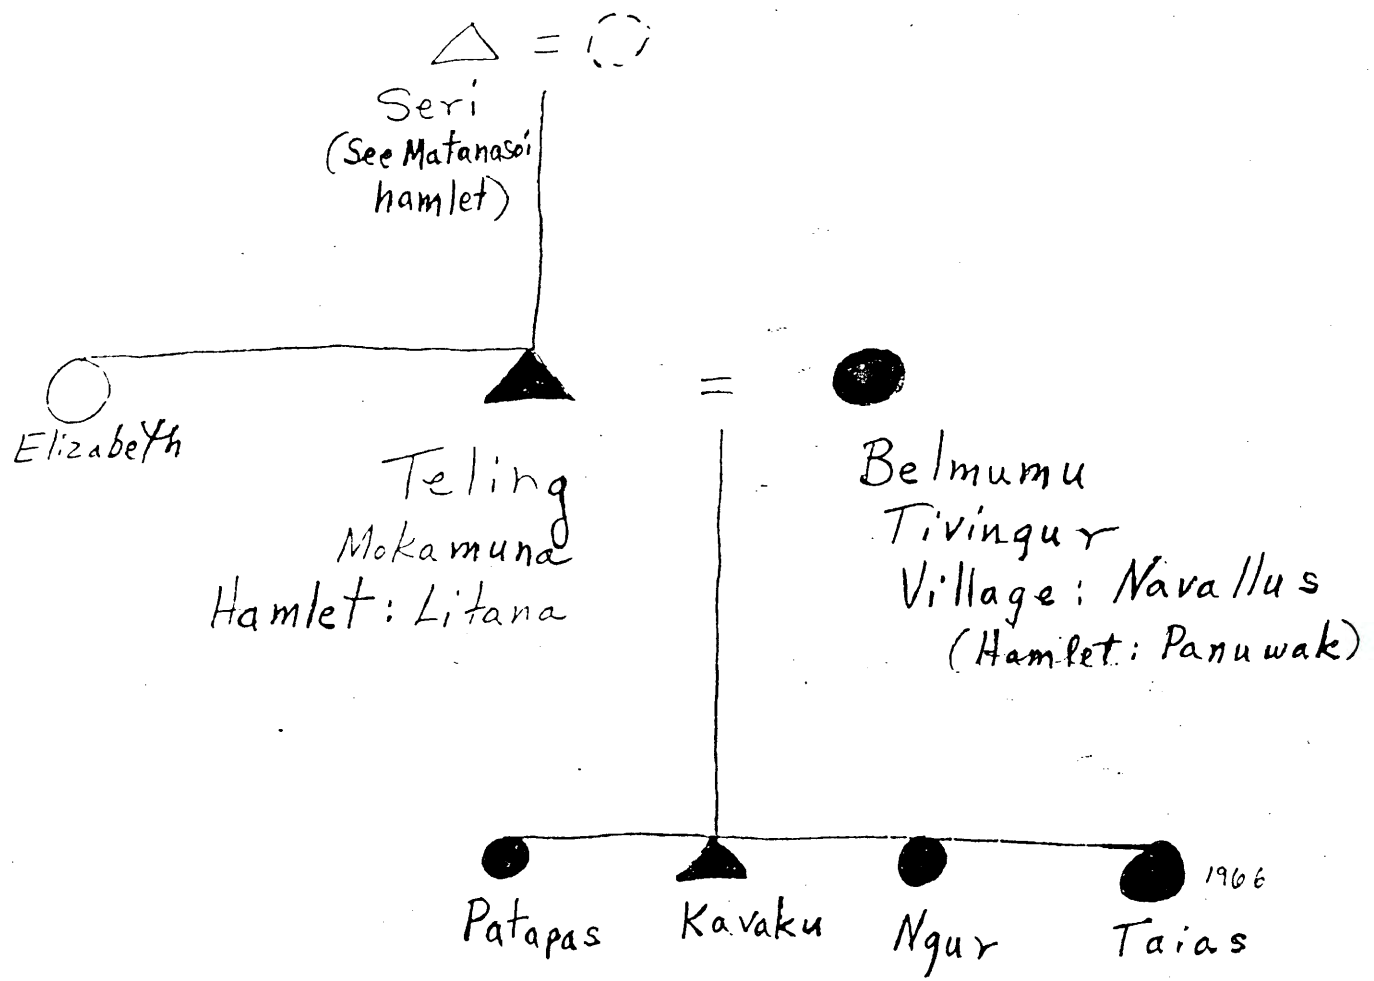 Seri
(See Matanasoi
hamlet)
Elizabeth
Teling
Mokamuna
Hamlet: Litana
Belmumu
Tivingur
Village: Navallus
(Hamlet: Panuwak)
1966
Patapas
Kavaku
Ngur
Taias